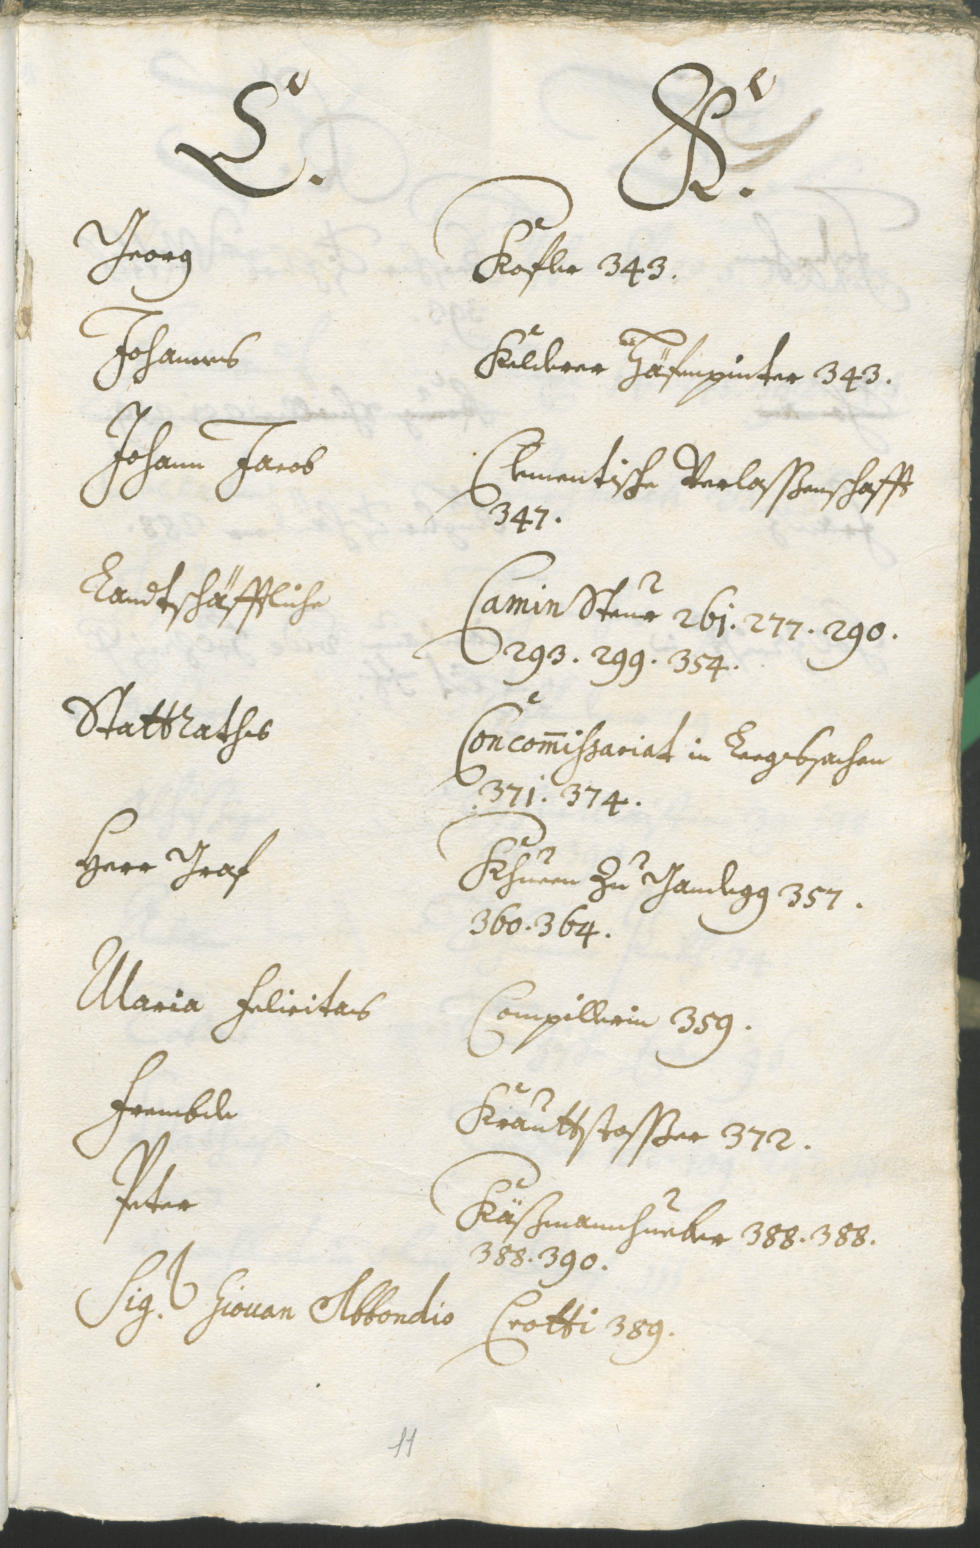 C. K.
Georg Kofler 343.
Johannes Kelderer Häfenpinter 343.
Johann Jacob Clementische Verlassenschafft
347.
Landtschäfftliche Camin Steur 261. 277. 290.
293. 299. 354.
Stattraths Concom̄issariat in Kriegssachen
371. 374.
Herr Graf Khuen zu Gandegg 357.
360. 364.
Maria Felicitas Compillerin 359.
Frembde Krauttstosser 372.
Peter Käßmannhueber 388. 388.
388. 390.
Sig. Giouan Abbondio Crotti 389.
11